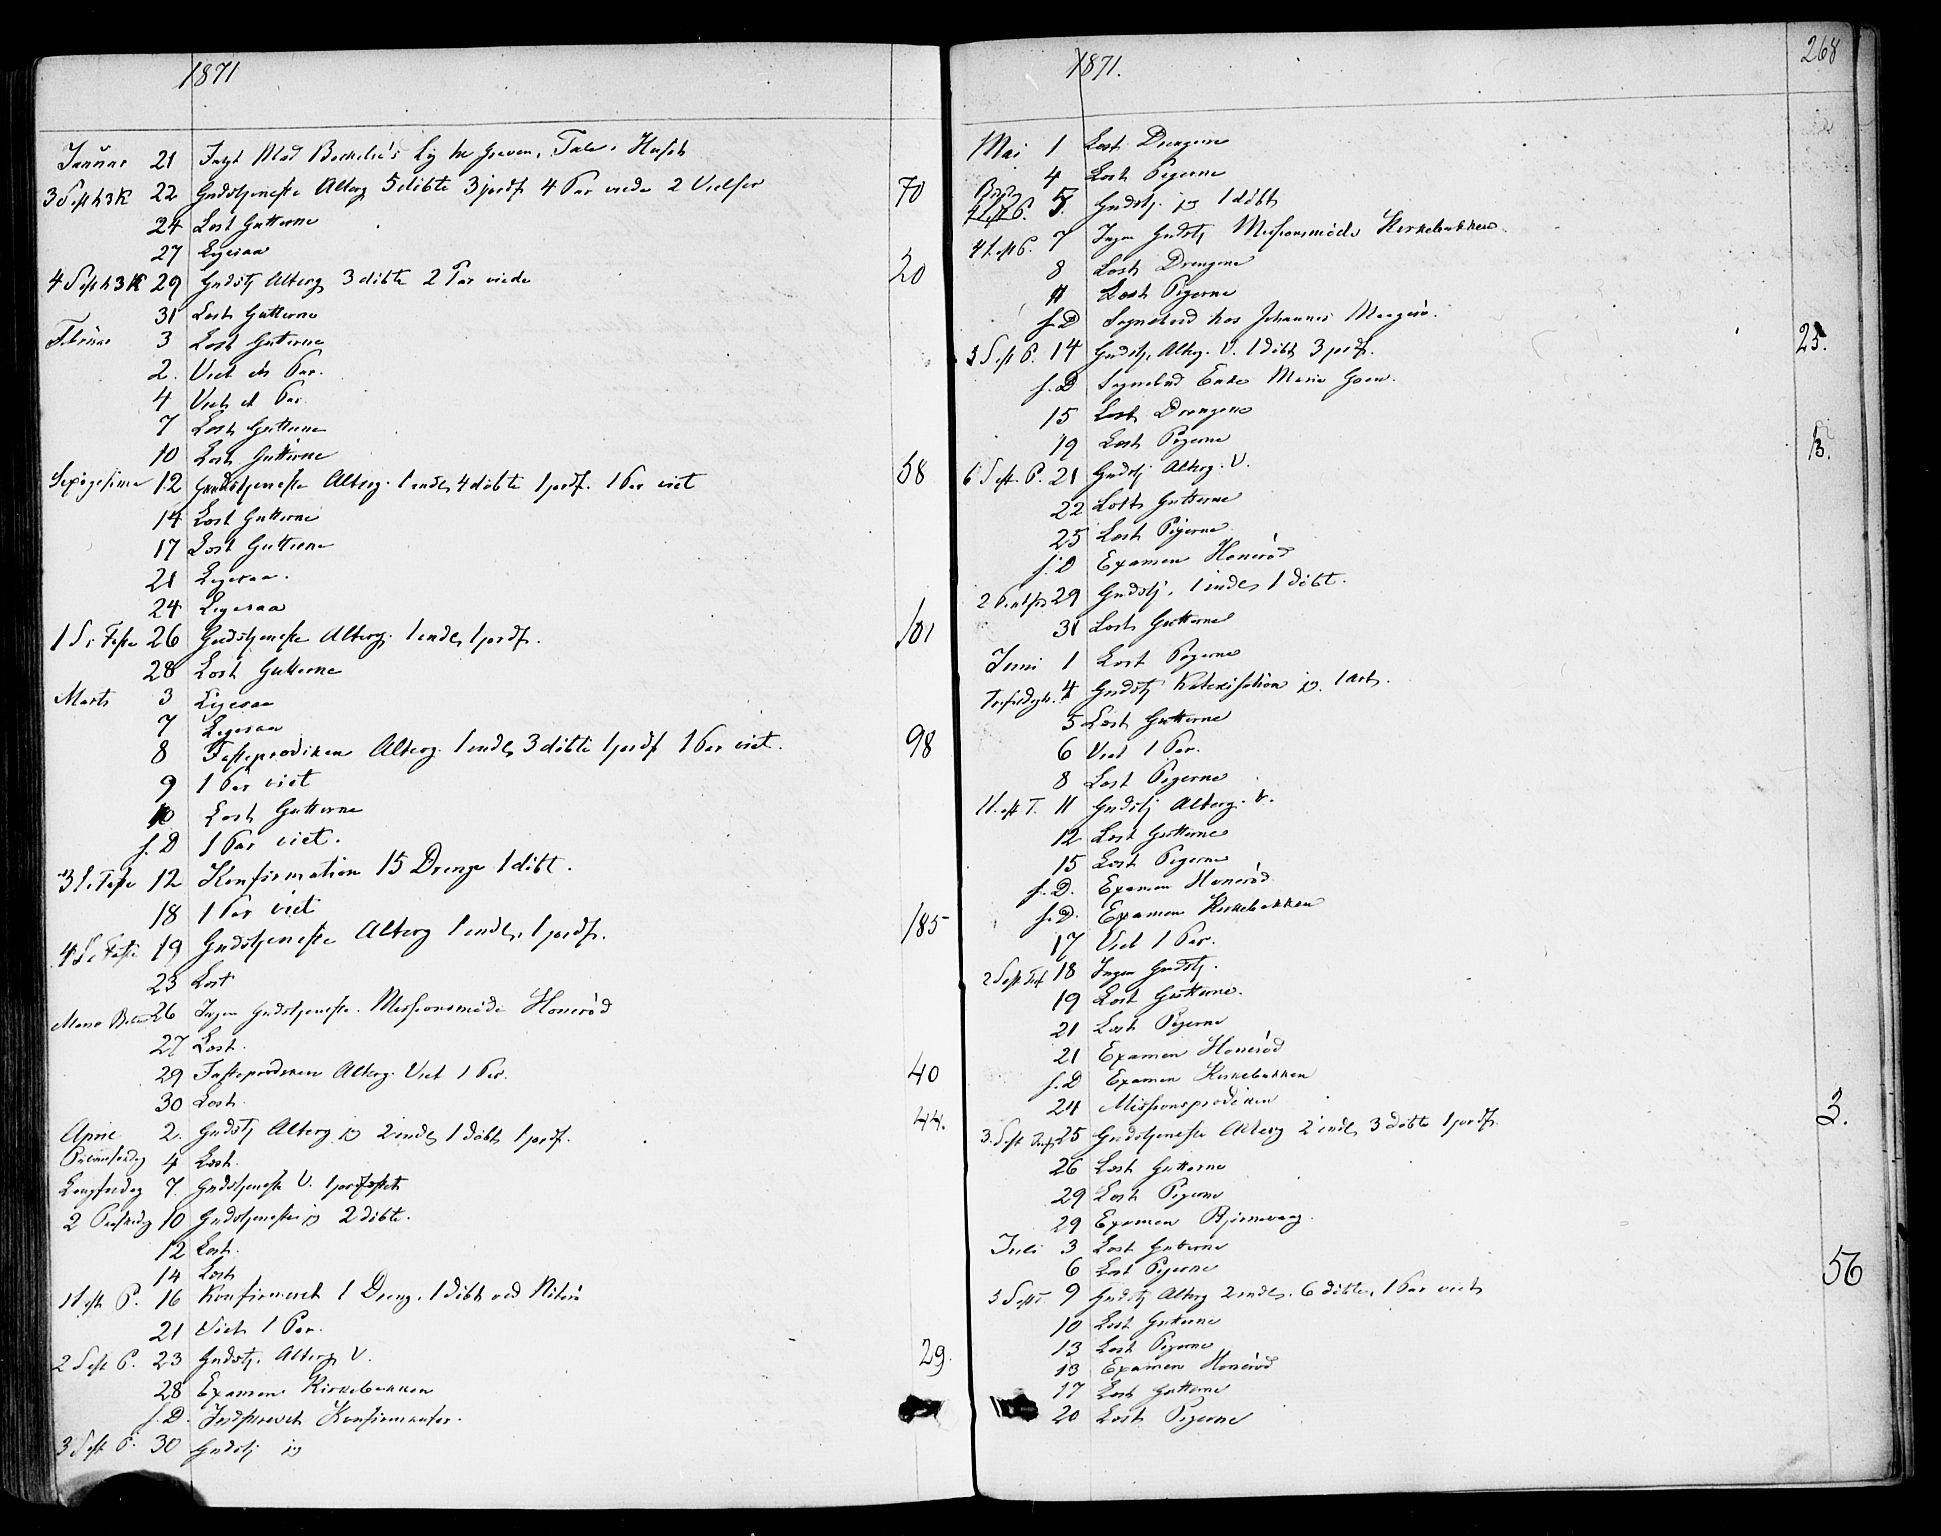 1871
Januar 21 Mad Lig Tale i Huset
3 S e h 3 K 22 Gudstjeneste Altorg 5 döbte 3 jordf 4 Par viede 70
24 Læst Gutterne
27 Ligesaa
4 S e h 3 K 29 Gudstj Altorg 3 döbte 2 Par viede 20
31 Læst Gutterne
Februar 3 Læst Gutterne
2. Viet et Par.
4 Viet et Par
7 Læst Gutterne
10 Læst Gutterne
Sexagesima 12 Gudstjeneste Altorg. 1 indl, 4 döbte 1 jordf. 1 Par viet 58
14 Læst Gutterne
17 Læst Gutterne
21 Ligesaa.
24 Ligesaa
1 S i Faste 26 Gudstjeneste Altorg. 1 indl, 1 jordf. 101
28 Læst Gutterne
Marts 3 Ligesaa
7 Ligesaa
8 Fasteprædiken Altorg. 1 indl, 3 döbte 1 jordf 1 Par viet. 98
9 1 Par viet
10 Læst Gutterne
s. D 1 Par viet.
3 S i Faste 12 Konfirmation 15 Drenge 1 döbt.
18 1 Par viet
4 S i Faste 19 Gudstjeneste Altorg 1 indl, 1 jordf. 185
23 Læst
Maria Beb 26 Ingen Gudstjeneste. Missionsmöde Honeröd
27 Læst.
29 Fasteprædiken Altorg. Viet 1 Par. 40
30 Læst.
April 2. Gudstj Altorg 2 indl, 1 döbt, 1 jordf. 44.
4 Læst.
Langfredag 7. Gudstjeneste V. 1 jordfæstet
2 Paaskedag 10 Gudstjeneste 2 döbte.
12 Læst.
14 Læst
1 S eft P. 16 Konfirmeret 1 Dreng, 1 döbt
21 Viet 1 Par.
2 S eft P. 23 Gudstj. Altorg V. 29.
28 Examen Kirkebakken
s. D. Indskrevet Konfirmanter.
3 S eft P. 30 Gudstj
1871. 268
Mai 1 Læst Drengene
4 Læst Pigerne
5. Gudstj. 1 döbt
4 S eft P. 7 Ingen Gudstj Missionsmöde Kirkebakken
8 Læst Drengene
11 Læst Pigerne
s. D Sognebud hos Johannes
5 S eft P. 14 Gudstj. Altorg. V. 1 döbt 3 jordf. 25.
s. D Sognebud Enke Maria
15 Læst Drengene
19 Læst Pigerne
6 S eft. P. 21 Gudstj Altorg. V. 13.
22 Læst Gutterne
25 Læst Pigerne
s. D Examen Honeröd
2 Pintsed 29 Gudstj. 1 indl, 1 döbt.
31 Læst Gutterne
Juni 1 Læst Pigerne
4 Gudstj Katekisation
5 Læst Gutterne
6 Viet 1 Par.
8 Læst Pigerne
1 S. eft T. 11 Gudstj Altorg. V.
12 Læst Gutterne
15 Læst Pigerne
s. D. Examen Honeröd
s. D. Examen Kirkebakken
17 Viet 1 Par.
2 S eft Tref 18 Ingen Gudstj.
19 Læst Gutterne.
21 Læst Pigerne
21 Examen Honeröd
s. D Examen Kirkebakken
24 Missionsprædiken
3. S eft Tref 25 Gudstjeneste Altorg 2 indl, 3 döbte 1 jordf. 3.
26 Læst Gutterne
29 Læst Pigerne
29 Examen Björnevaag.
Juli 3 Læst Gutterne
6 Læst Pigerne
5 S eft T. 9 Gudstj Altorg 2 indl. 6 döbte, 1 Par viet 56
10 Læst Gutterne
13 Læst Pigerne
13 Examen Honeröd
17 Læst Gutterne
20 Læst Pigerne